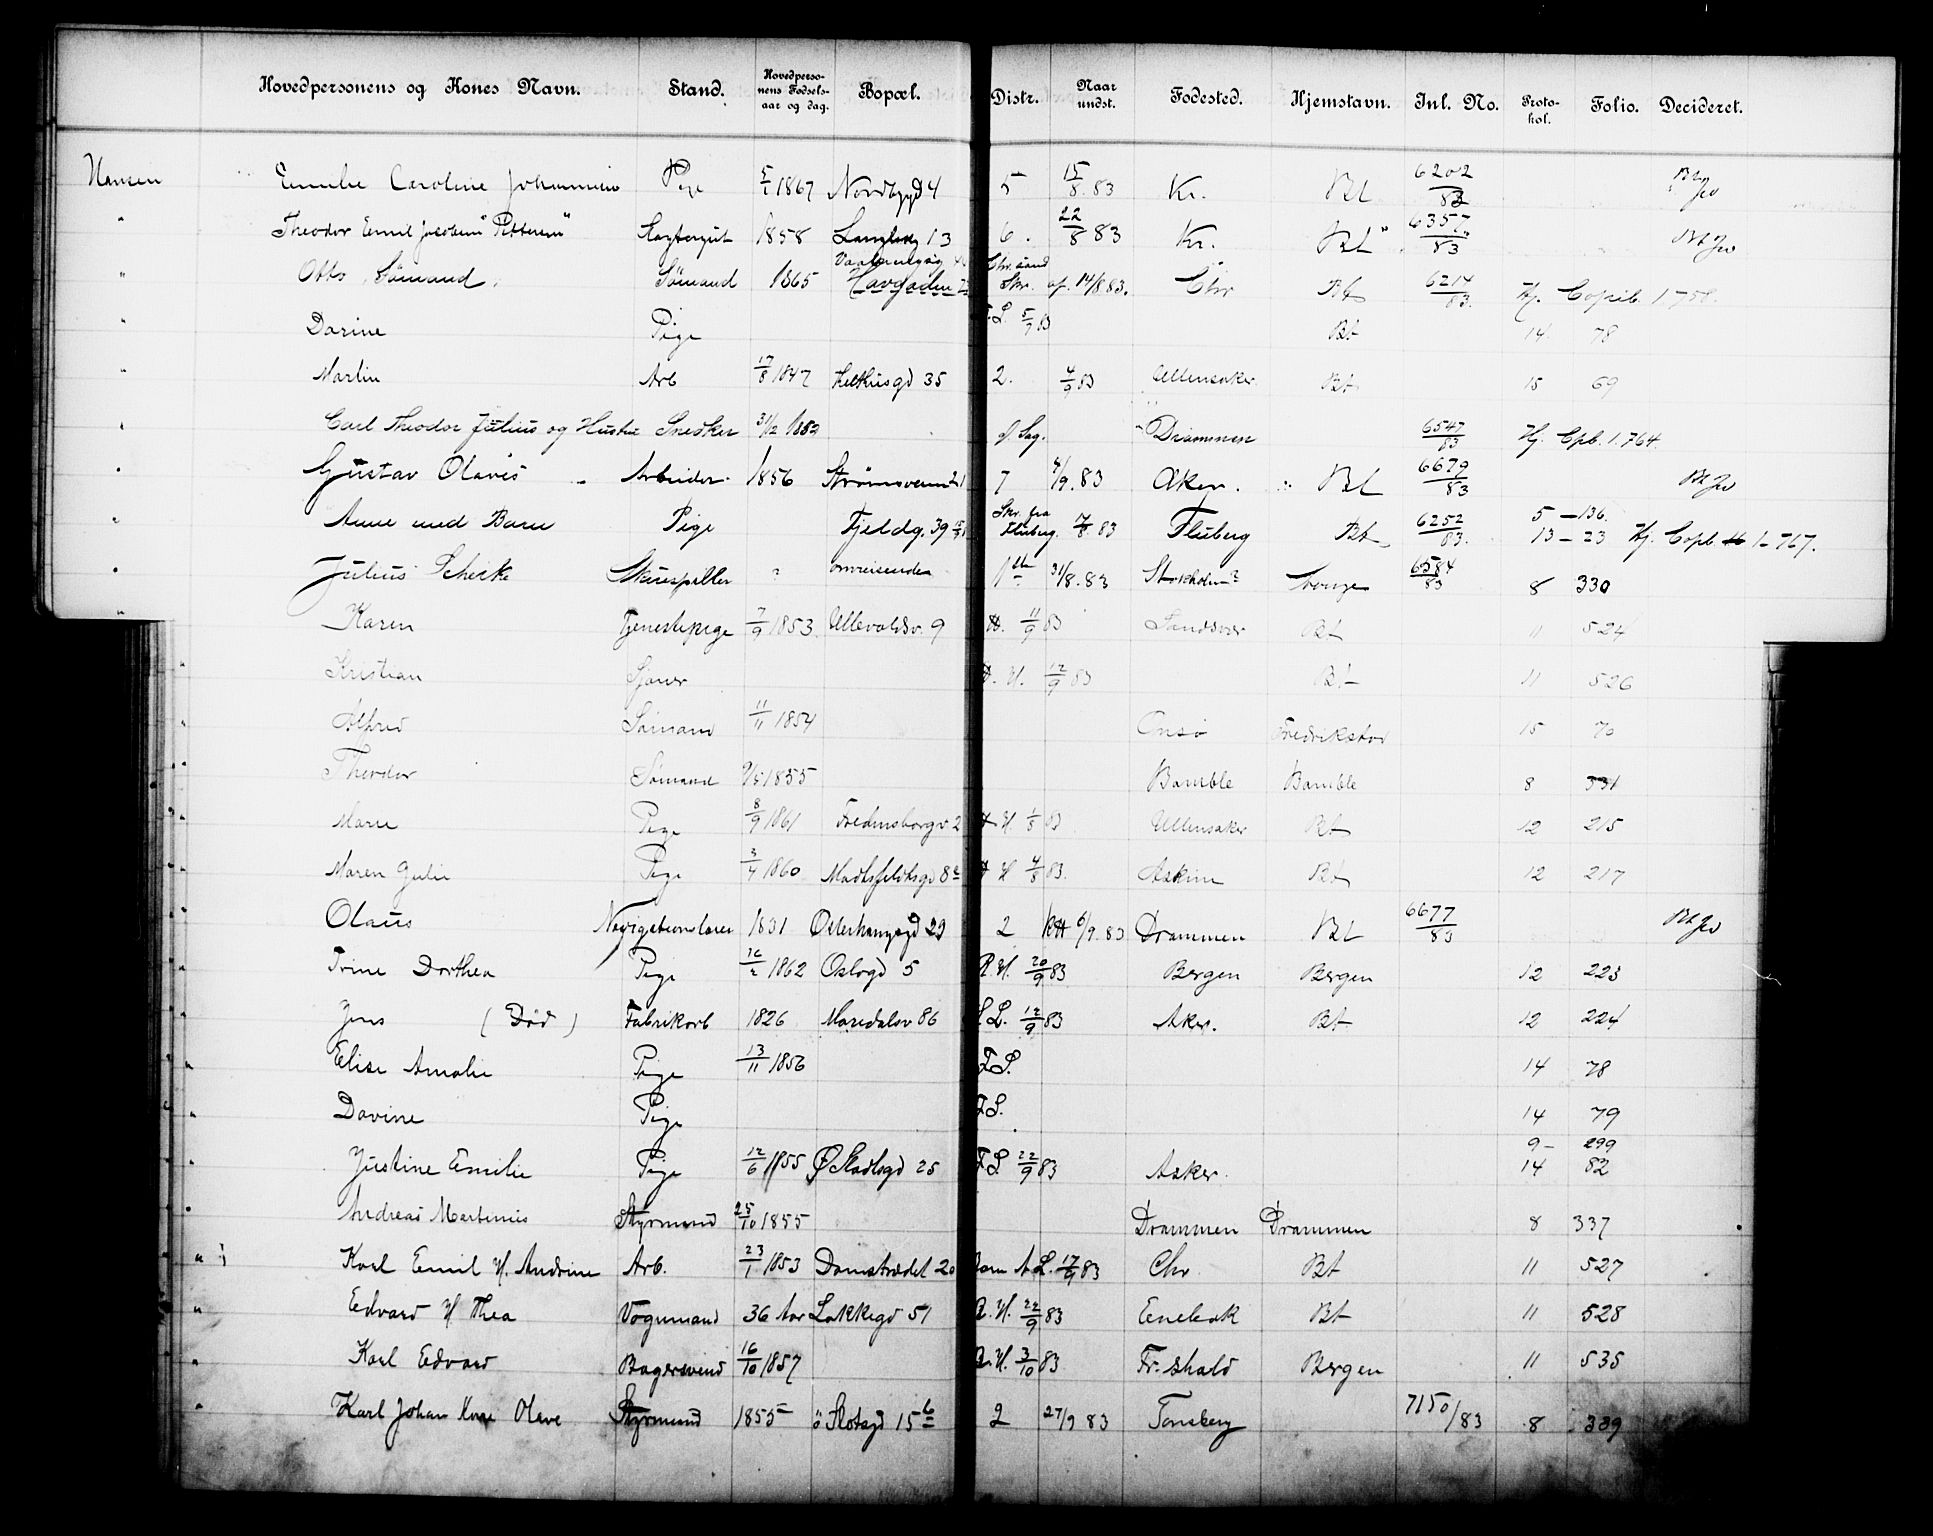 Hovedpersonens og Kones Navn. Stand. Hovedperso- nens Fødsels- aar og dag. Bopæl. Distr. Naar undst. Fødested. Hjemstavn. Inl. No. Proto- kol. Folio. Decideret.
Hansen Emilie Caroline Johannesen Pige 5/1 1867 Nordbygd 4 5 15/8.83 Kr. Bt 6202/83
" Theodor Emil Jacobsen "Pettersen" Slagtergut 1858 Langbg 13 6. 22/8 83 Kr. Bt 6357/83
" Otto Sømand Sømand 1865 Havgaden Chr.sand Skr. af 14/8.83. Chr Bt 6214/83. Hj. Copieb. 1 758.
" Dorine Pige F.L. 5/9 83 Bt 14 78
" Martin Arb 17/8 1847 Heltkusgd 35 2. 4/9 83 Ullensaker Bt 15 69
" Carl Theodor Julius og Hustru Snedker 31/12 1882 Sag. Drammen 6547/83 Hj. Cpb. 1.764.
" Gustav Olavis Arbeider 1856 Strømsveien 21 7 4/9.83 Aker. Bt 6679/83
" Anne med Barn Pige Fjeldg. 39 Skr. fra Fluberg 17/8.83 Fluberg Bt 6252/83. 5 – 136. 13 – 23 Hj. Copb. 1 – 767.
" Julius Scherke Skuespiller ? omreisende 31/8.83 Stokholm? 6584/83 8 330
" Karen Tjenestepige 7/9 1853 Ullevoldsv. 9 11/9 83 Sandsvær Bt 11 524
" Kristian Sjouer H. 12/9 83 Bt 11 526
" Alfred Sømand 11/11 1854 Onsø Fredrikstad 15 70
" Theodor Sømand 9/5 1855 Bamble Bamble 8 331
" Marie Pige 8/9 1861 Fredensborgv 2 H. 1/8 83 Ullensaker Bt 12 215
" Maren Julie Pige 3/4 1860 Madtsfeldtsgd 8 H 4/8 83. Askim Bt 12 217
" Olaus Navigationslærer 1831 Østerhausgd 29 2 6/9.83 Drammen Bt 6677/83
" Trine Dorthea Pige 16/2 1862 Oslogd 5 R.H. 20/9 83 Bergen Bergen 12 223
" Jens (Død) Fabrikarb 1826 Maridalsv 86 L. 12/9 83 Aker. Bt 12 224
" Elise Amalie Pige 13/11 1856 F.L. 14 78
" Davine Pige F.L. 14 79
" Justine Emilie Pige 12/6 1855 Ø Slotsgd 25 F.L. 22/9 83 Asker. 9 – 299 14 82
" Andreas Martinius Styrmand 25/10 1855 Drammen Drammen 8 337
" Karl Emil H. Andrine Arb. 23/1 1853 Damstrædet 20 A L. 17/9 83 Chr Bt 11 527
" Edvard H Thea Vognmand 36 Aar Lakkegd 51 R.H. 22/9 83 Enebak Bt 11 528
" Karl Edvard Bagersvend 16/10 1857 R.H. 3/10 83 Fr.shald Bergen 11 535
" Karl Johan Kone Olave Styrmand 1855 ø Slotsgd 15 b 2 27/9 83 Tønsberg 7150/83 8 339